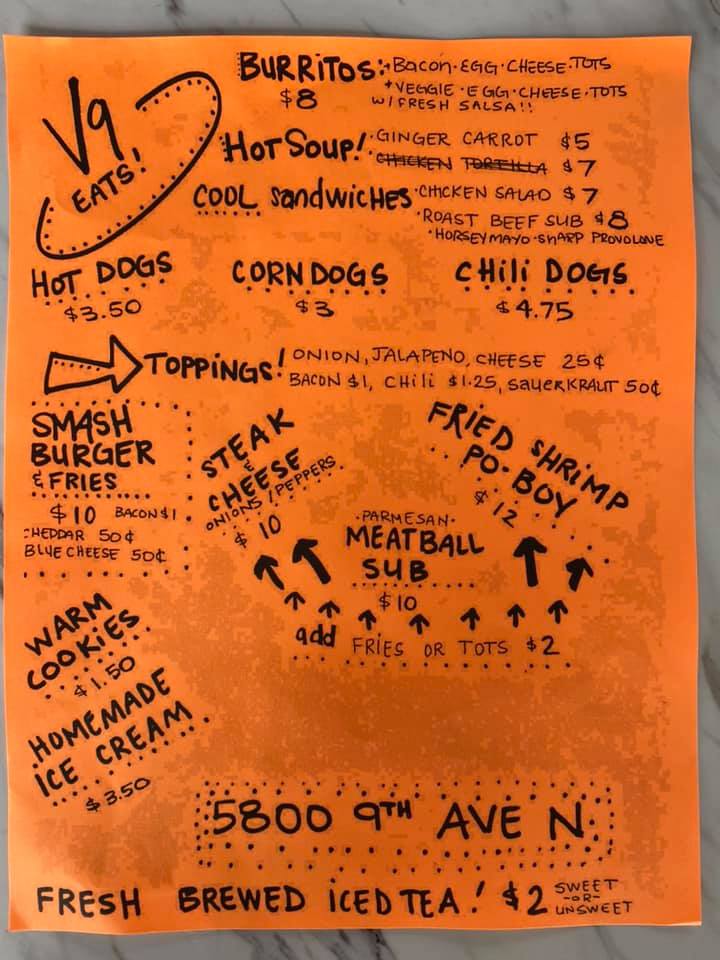 V9
EATS!
BURRITOS: • Bacon·EGG·CHEESE·TOTS
$8
• VEGGIE·EGG·CHEESE·TOTS
W/FRESH SALSA!!
HOT SOUP! ·GINGER CARROT $5
·CHICKEN TORTILLA $7
COOL SandwicHES ·CHICKEN SALAD $7
·ROAST BEEF SUB $8
·HORSEYMAYO·SHARP PROVOLONE
HOT DOGS
$3.50
CORN DOGS
$3
CHili DOGS
$4.75
TOPPINGS! ONION, JALAPENO, CHEESE 25¢
BACON $1, CHili $1.25, SAUERKRAUT 50¢
SMASH
BURGER
& FRIES
$10 BACON $1
CHEDDAR 50¢
BLUE CHEESE 50¢
STEAK
&
CHEESE
ONIONS/PEPPERS
$10
·PARMESAN·
MEATBALL
SUB
$10
FRIED SHRIMP
PO-BOY
$12
add FRIES OR TOTS $2
WARM
COOKIES
$1.50
HOMEMADE
ICE CREAM
$3.50
5800 9TH AVE N
FRESH BREWED ICED TEA! $2 SWEET
-OR-
UNSWEET